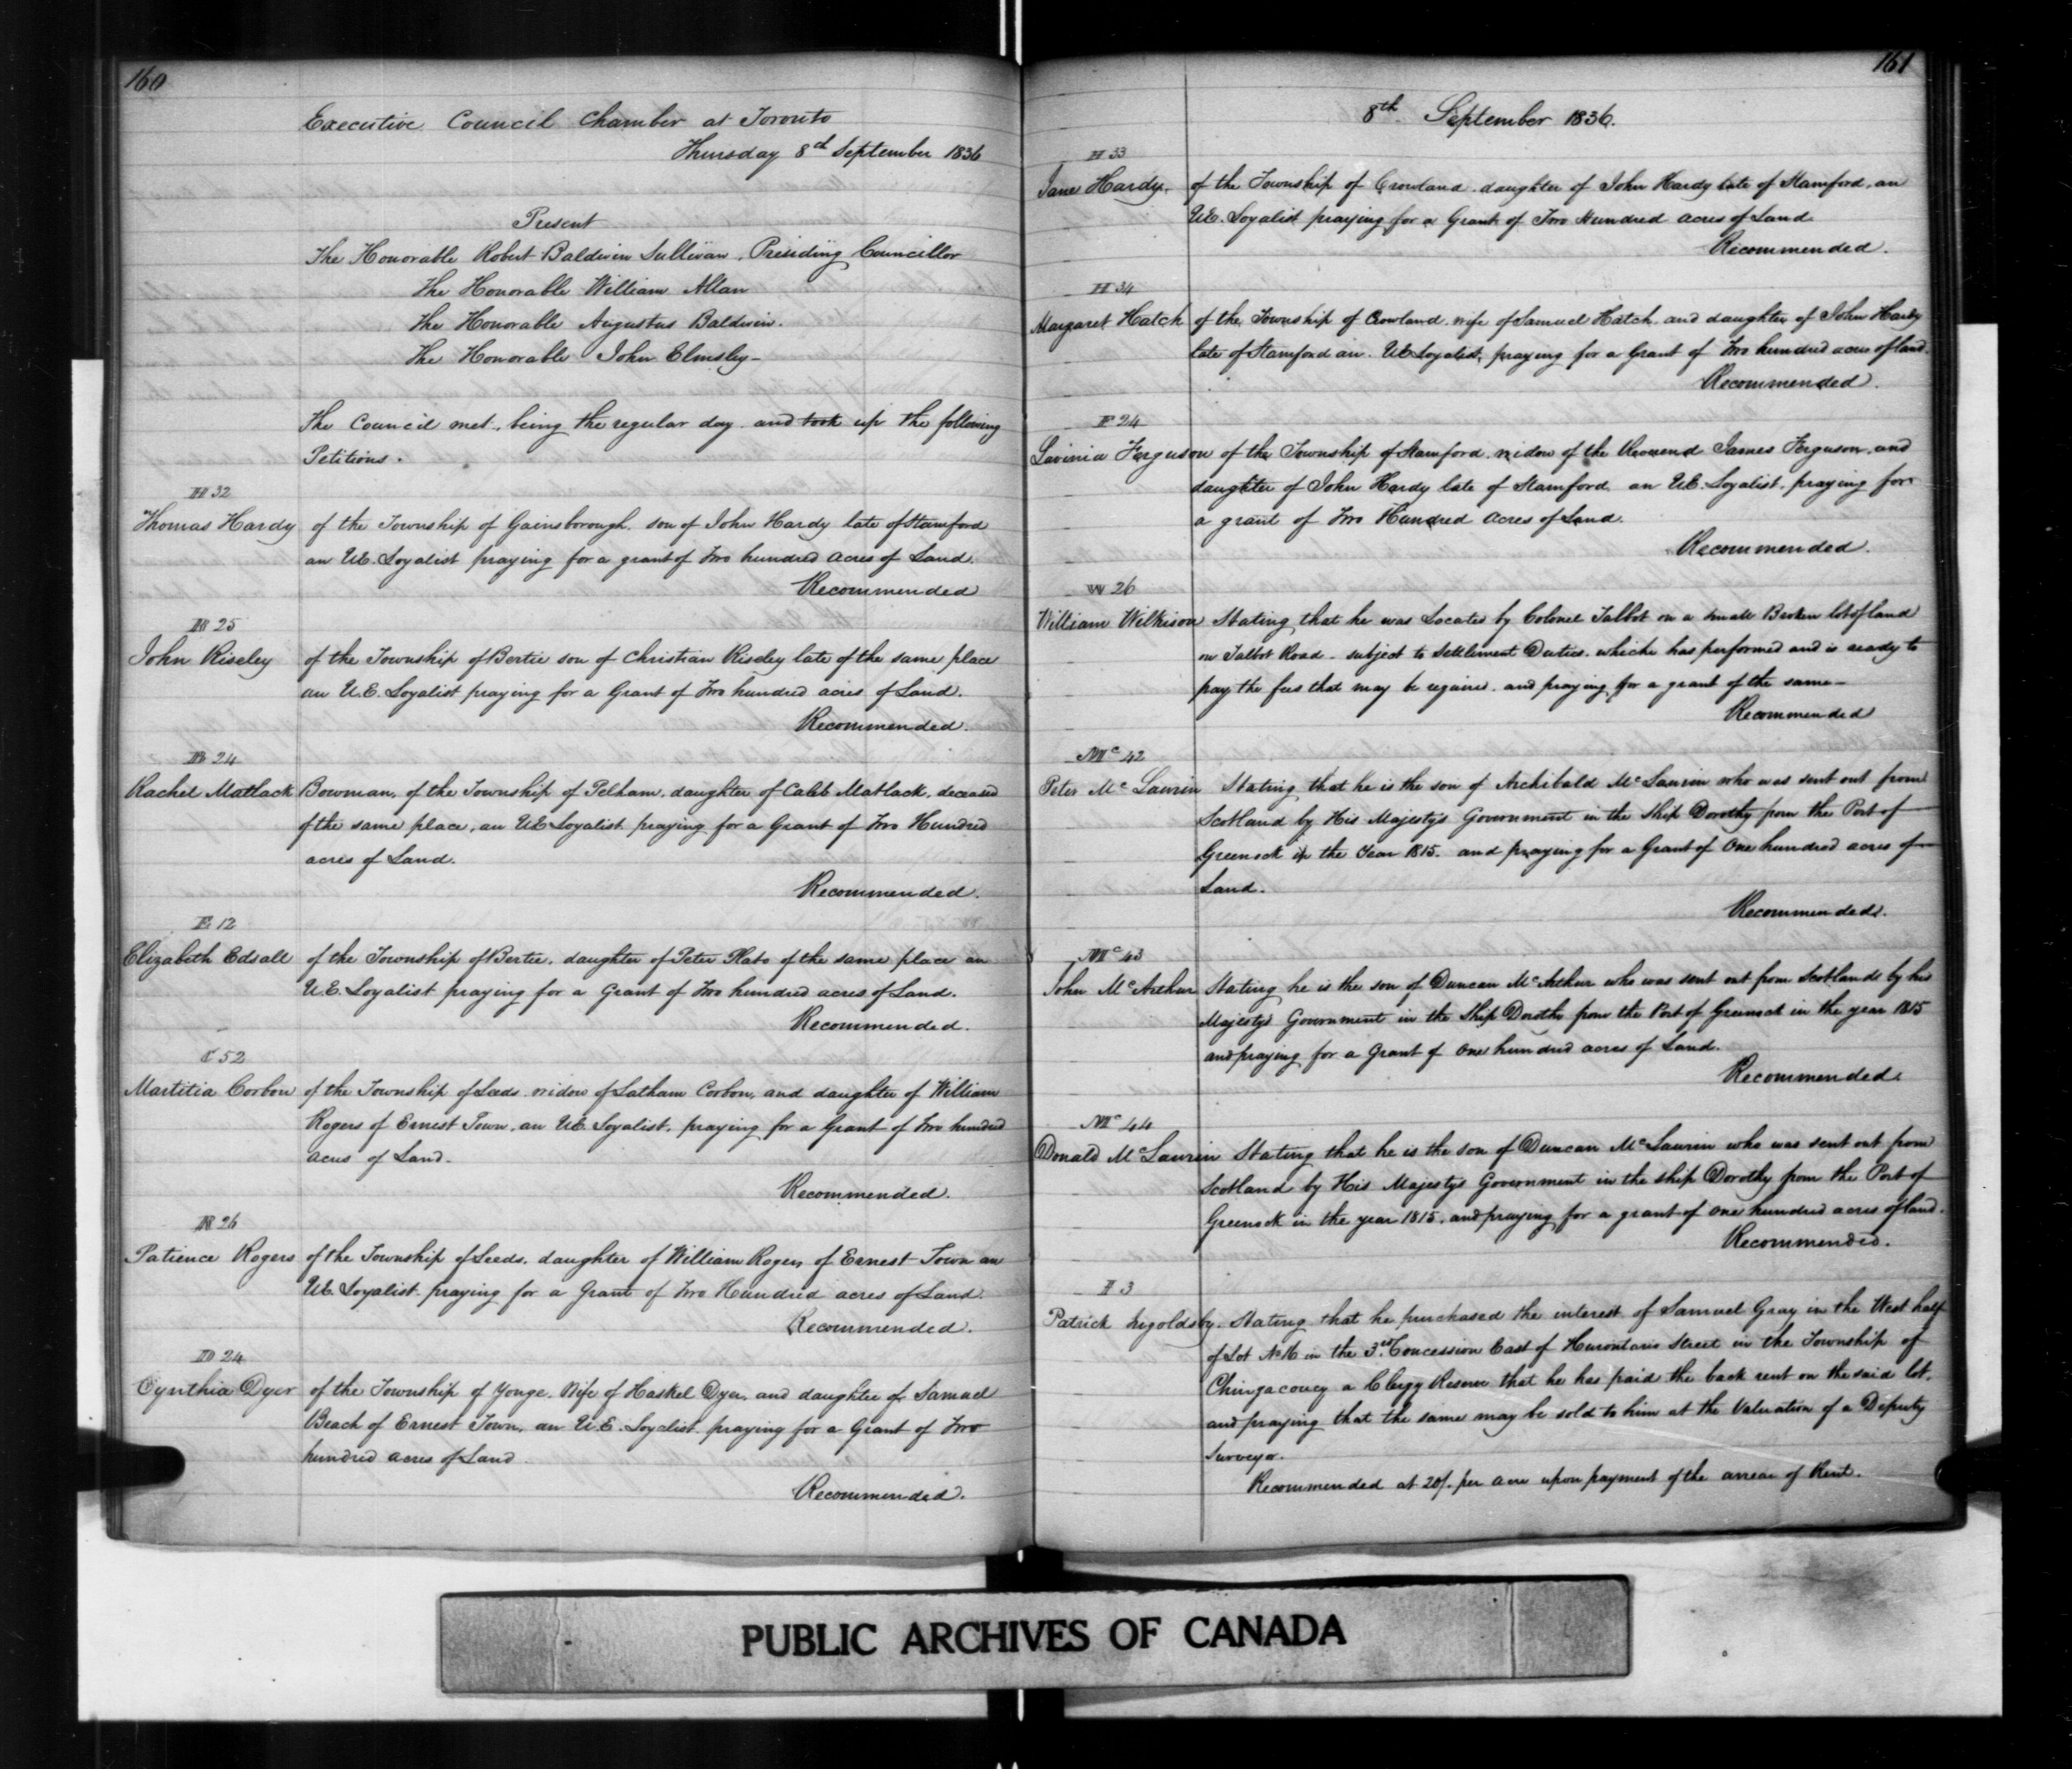 160
Executive Council Chamber at Toronto
Thursday 8th September 1836
Present
The Honorable Robert Baldwin Sullivan, Presiding Councillor
The Honorable William Allan
The Honorable Augustus Baldwin.
The Honorable John Elmsley-
The Council met, being the regular day and took up the following
Petitions.
H 32
Thomas Hardy of the Township of Gainsborough, son of John Hardy late of Stamford
an UE. Loyalist praying for a grant of Two hundred acres of Land.
Recommended
R 25
John Riseley of the Township of Bertie son of Christian Riseley late of the same place
an U.E. Loyalist praying for a Grant of Two hundred acres of Land.
Recommended.
B 24
Rachel Matlack Bowman, of the Township of Pelham, daughter of Caleb Matlack, deceased
of the same place, an UE Loyalist praying for a Grant of Two Hundred
acres of Land.
Recommended.
E 12
Elizabeth Edsall of the Township of Bertie, daughter of Peter Plato of the same place an
U.E. Loyalist praying for a Grant of Two hundred acres of Land.
Recommended.
C 52
Martitia Corbon of the Township of Leeds widow of Latham Corbon, and daughter of William
Rogers of Ernest Town, an UE Loyalist, praying for a Grant of Two hundred
acres of Land.
Recommended.
R 26
Patience Rogers of the Township of Leeds, daughter of William Rogers of Ernest Town an
UE Loyalist praying for a Grant of Two Hundred acres of Land.
Recommended.
D 24
Cynthia Dyer of the Township of Yonge, Wife of Haskel Dyer, and daughter of Samuel
Beach of Ernest Town, an U.E. Loyalist praying for a Grant of Two
hundred acres of Land
Recommended.
161
8th September 1836.
H 33
Jane Hardy, of the Township of Crowland, daughter of John Hardy late of Stamford, an
UE. Loyalist praying for a Grant of Two Hundred acres of Land
Recommended.
H 34
Margaret Hatch of the Township of Crowland, wife of Samuel Hatch, and daughter of John Hardy
late of Stamford an UE Loyalist, praying for a Grant of Two hundred acres of land.
Recommended.
F 24
Lavinia Ferguson of the Township of Stamford, widow of the Reverend James Ferguson, and
daughter of John Hardy late of Stamford an UE. Loyalist, praying for
a grant of Two Hundred Acres of Land.
Recommended.
W 26
William Wilkison Stating that he was Located by Colonel Talbot on a small Broken lot of land
on Talbot Road - subject to Settlement Duties, which he has performed and is ready to
pay the fees that may be required, and praying for a grant of the same-
Recommended
Mc 42
Peter McLaurin Stating that he is the son of Archibald McLaurin who was sent out from
Scotland by His Majestys Government in the Ship Dorothy from the Port of
Greenock in the Year 1815. and praying for a Grant of One hundred acres of
Land.
Recommended.
Mc 43
John McArthur Stating he is the son of Duncan McArthur who was sent out from Scotland by his
Majestys Government in the Ship Dorothy from the Port of Greenock in the year 1815
and praying for a Grant of One hundred acres of Land.
Recommended.
Mc 44
Donald McLaurin Stating that he is the son of Duncan McLaurin who was sent out from
Scotland by His Majestys Government in the ship Dorothy from the Port of
Greenock in the year 1815. and praying for a grant of one hundred acres of land.
Recommended.
I 3
Patrick Ingoldsby. Stating that he purchased the interest of Samuel Gray in the West half
of Lot No 16 in the 3rd Concession East of Hurontario Street in the Township of
Chingacoucy a Clergy Reserve that he has paid the back rent on the said lot,
and praying that the same may be sold to him at the Valuation of a Deputy
Surveyor.
Recommended at 20/. per acre upon payment of the arrear of Rent.
PUBLIC ARCHIVES OF CANADA